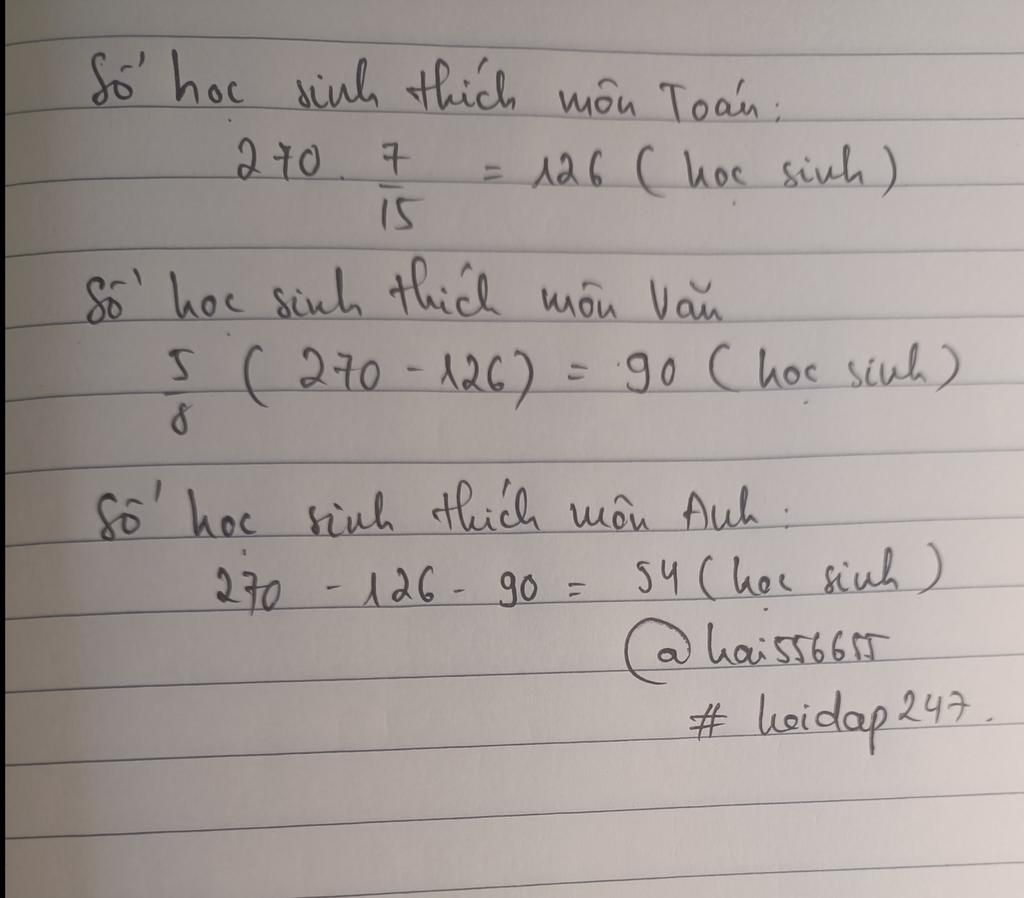 Số học sinh thích môn Toán:
270 . 7/15 = 126 ( học sinh )
Số học sinh thích môn Văn
5/8 ( 270 - 126 ) = 90 ( học sinh )
Số học sinh thích môn Anh :
270 - 126 - 90 = 54 ( học sinh )
@hai556655
# hoidap247.